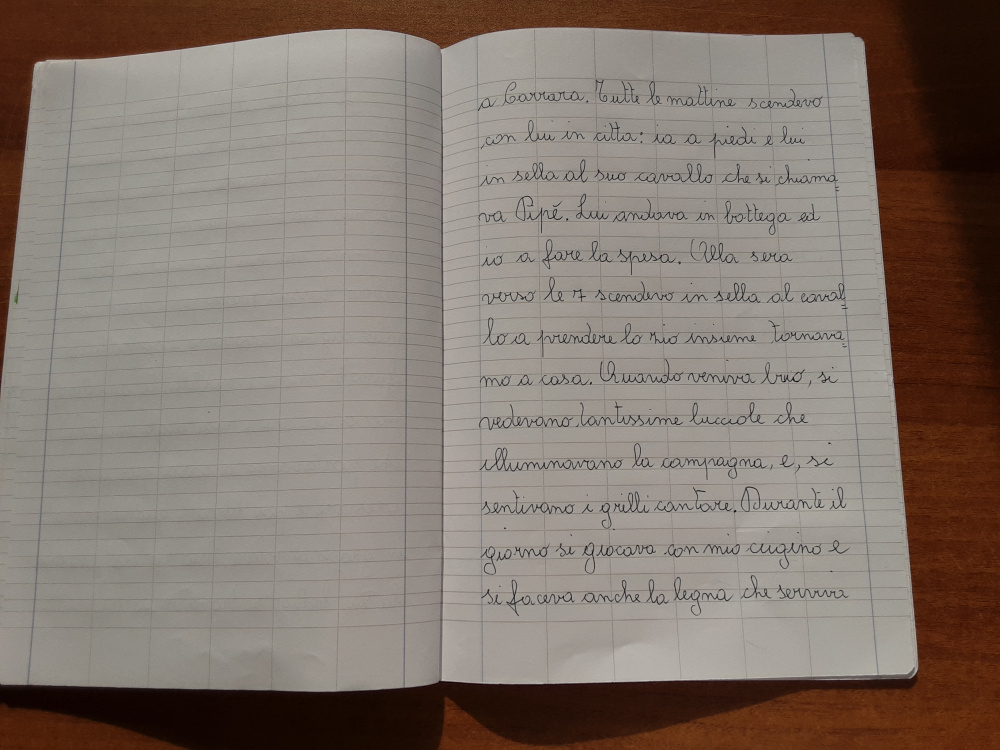 a Carrara. Tutte le mattine scendevo
con lui in citta: io a piedi e lui
in sella al suo cavallo che si chiama=
va Pipé. Lui andava in bottega ed
io a fare la spesa. Alla sera
verso le 7 scendevo in sella al caval=
lo a prendere lo zio insieme tornava=
mo a casa. Quando veniva buio, si
vedevano tantissime lucciole che
illuminavano la campagna, e, si
sentivano i grilli cantare. Durante il
giorno si giocava con mio cugino e
si faceva anche la legna che serviva